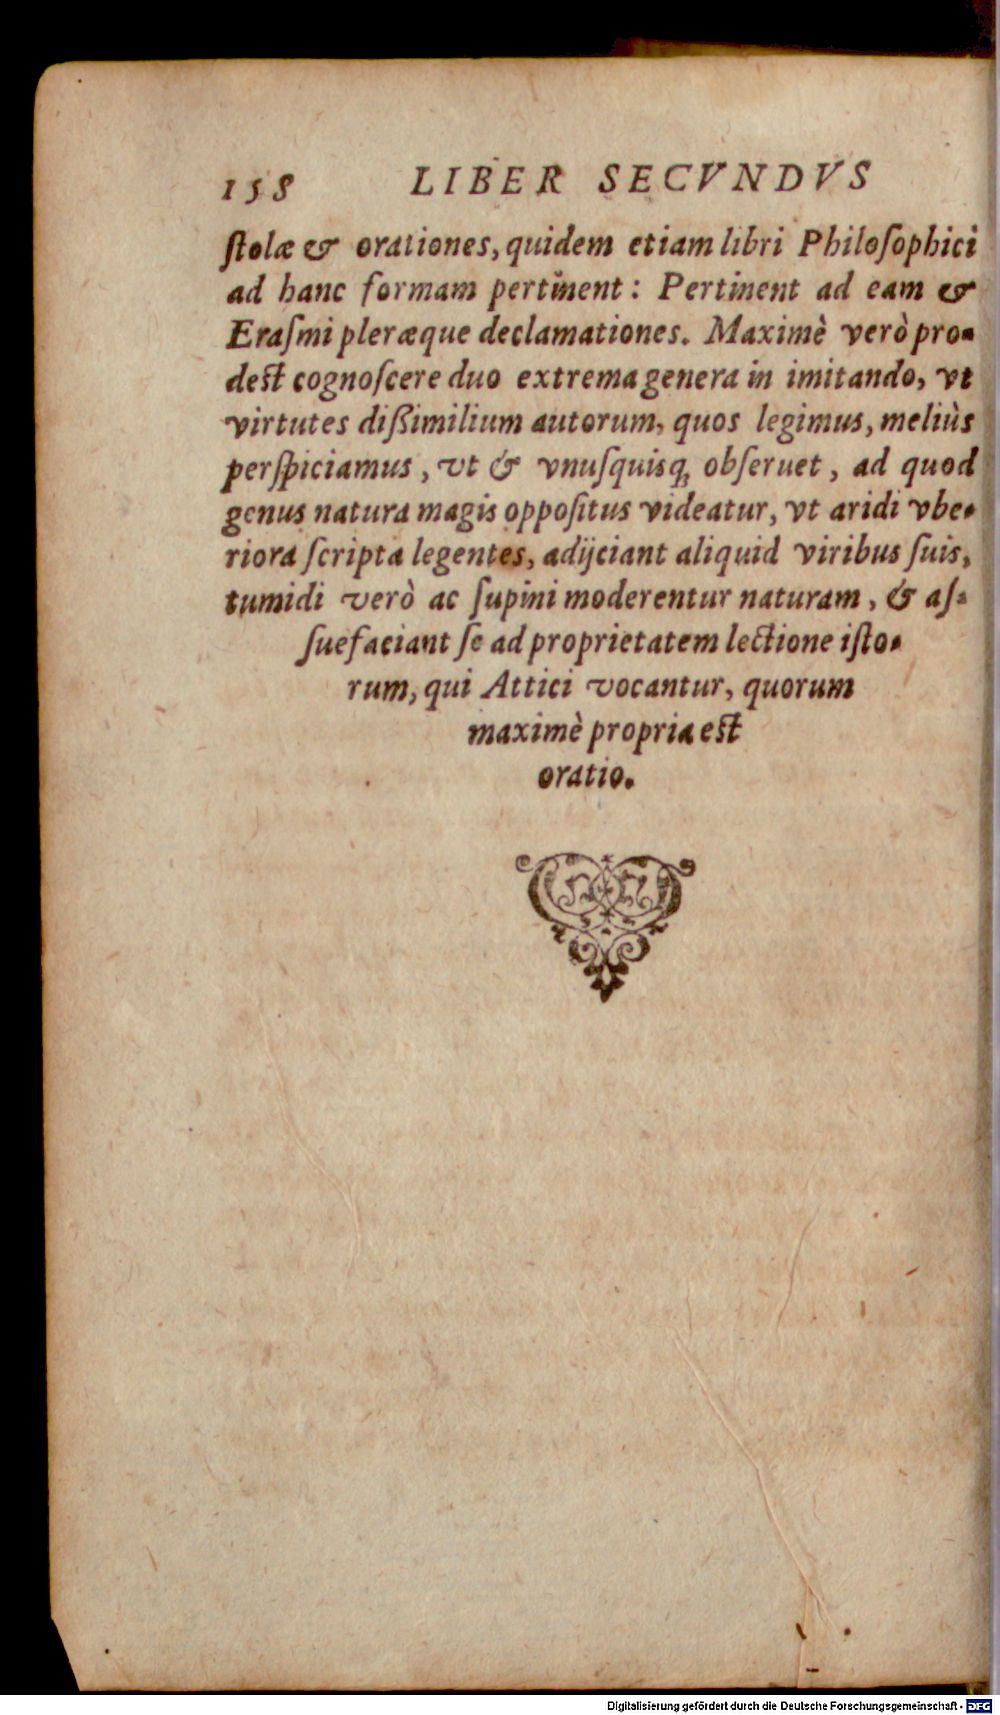 158 LIBER SECVNDVS
ſtolæ & orationes, quidem etiam libri Philoſophici
ad hanc formam pertinent: Pertinent ad eam &
Eraſmi pleræque declamationes. Maximè verò pro-
deſt cognoſcere duo extrema genera in imitando, vt
virtutes dißimilium autorum, quos legimus, meliùs
perſpiciamus, vt & vnuſquisq; obſeruet, ad quod
genus natura magis oppoſitus videatur, vt aridi vbe-
riora ſcripta legentes, adijciant aliquid viribus ſuis,
tumidi verò ac ſupini moderentur naturam, & aſ-
ſuefaciant ſe ad proprietatem lectione iſto-
rum, qui Attici vocantur, quorum
maximè propria eſt
oratio.
Digitalisierung gefördert durch die Deutsche Forschungsgemeinschaft - DFG